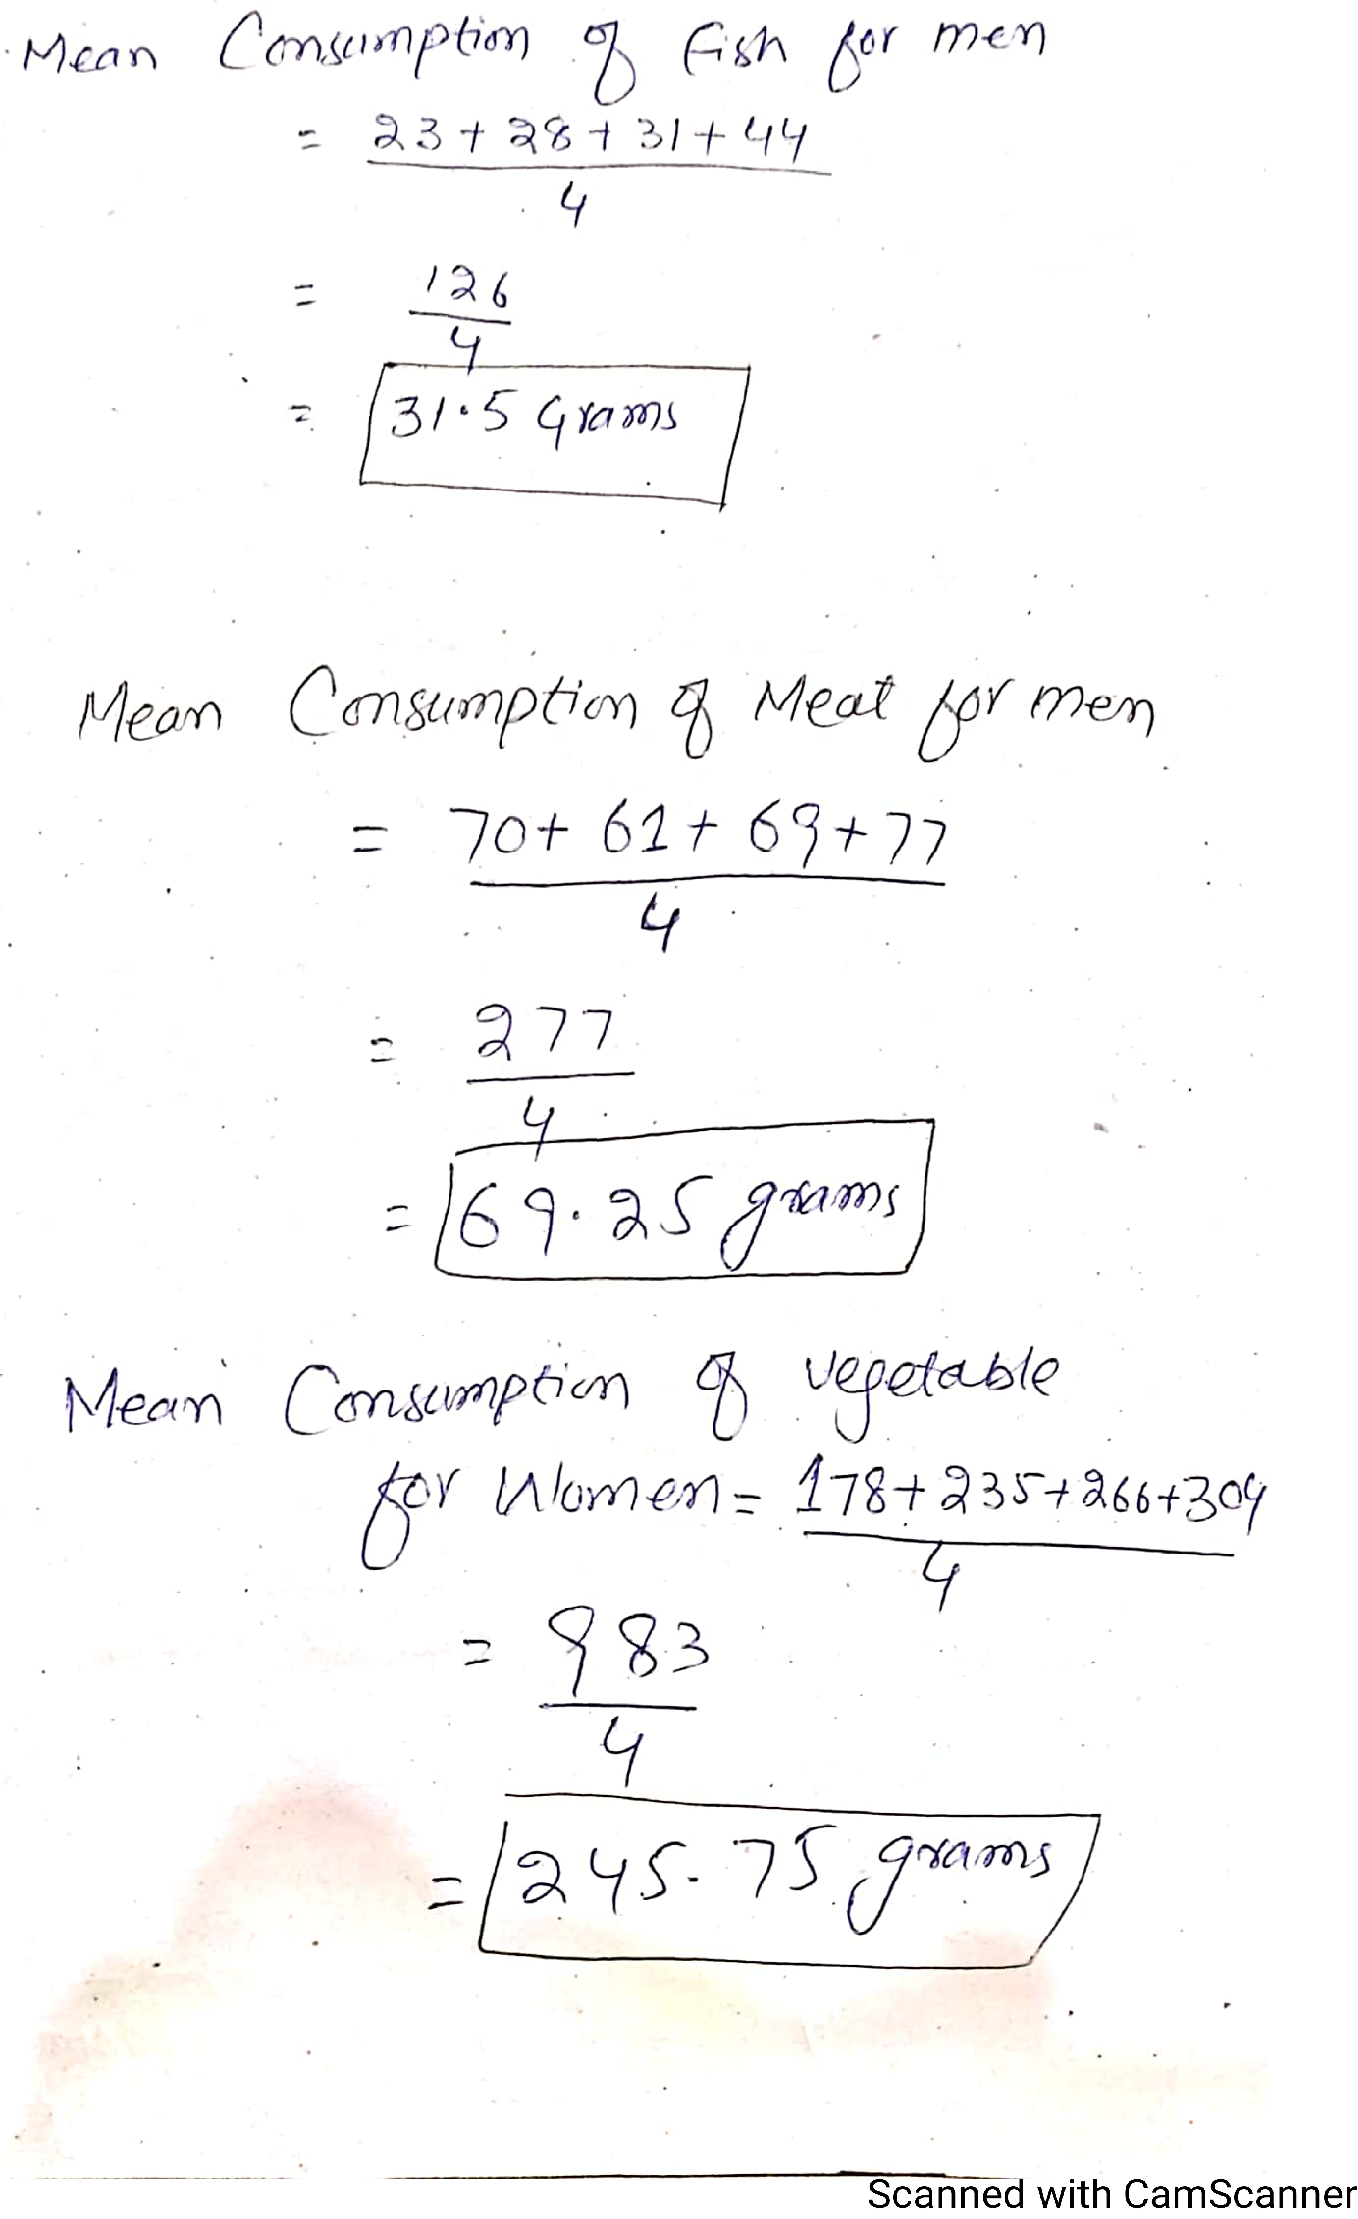 Mean Consumption of fish for men
= 23 + 28 + 31 + 44
4
= 126
4
= 31.5 Grams
Mean Consumption of Meat for men
= 70 + 61 + 69 + 77
4
= 277
4
= 69.25 grams
Mean Consumption of vegetable
for Women = 178 + 235 + 266 + 304
4
= 983
4
= 245.75 grams
Scanned with CamScanner